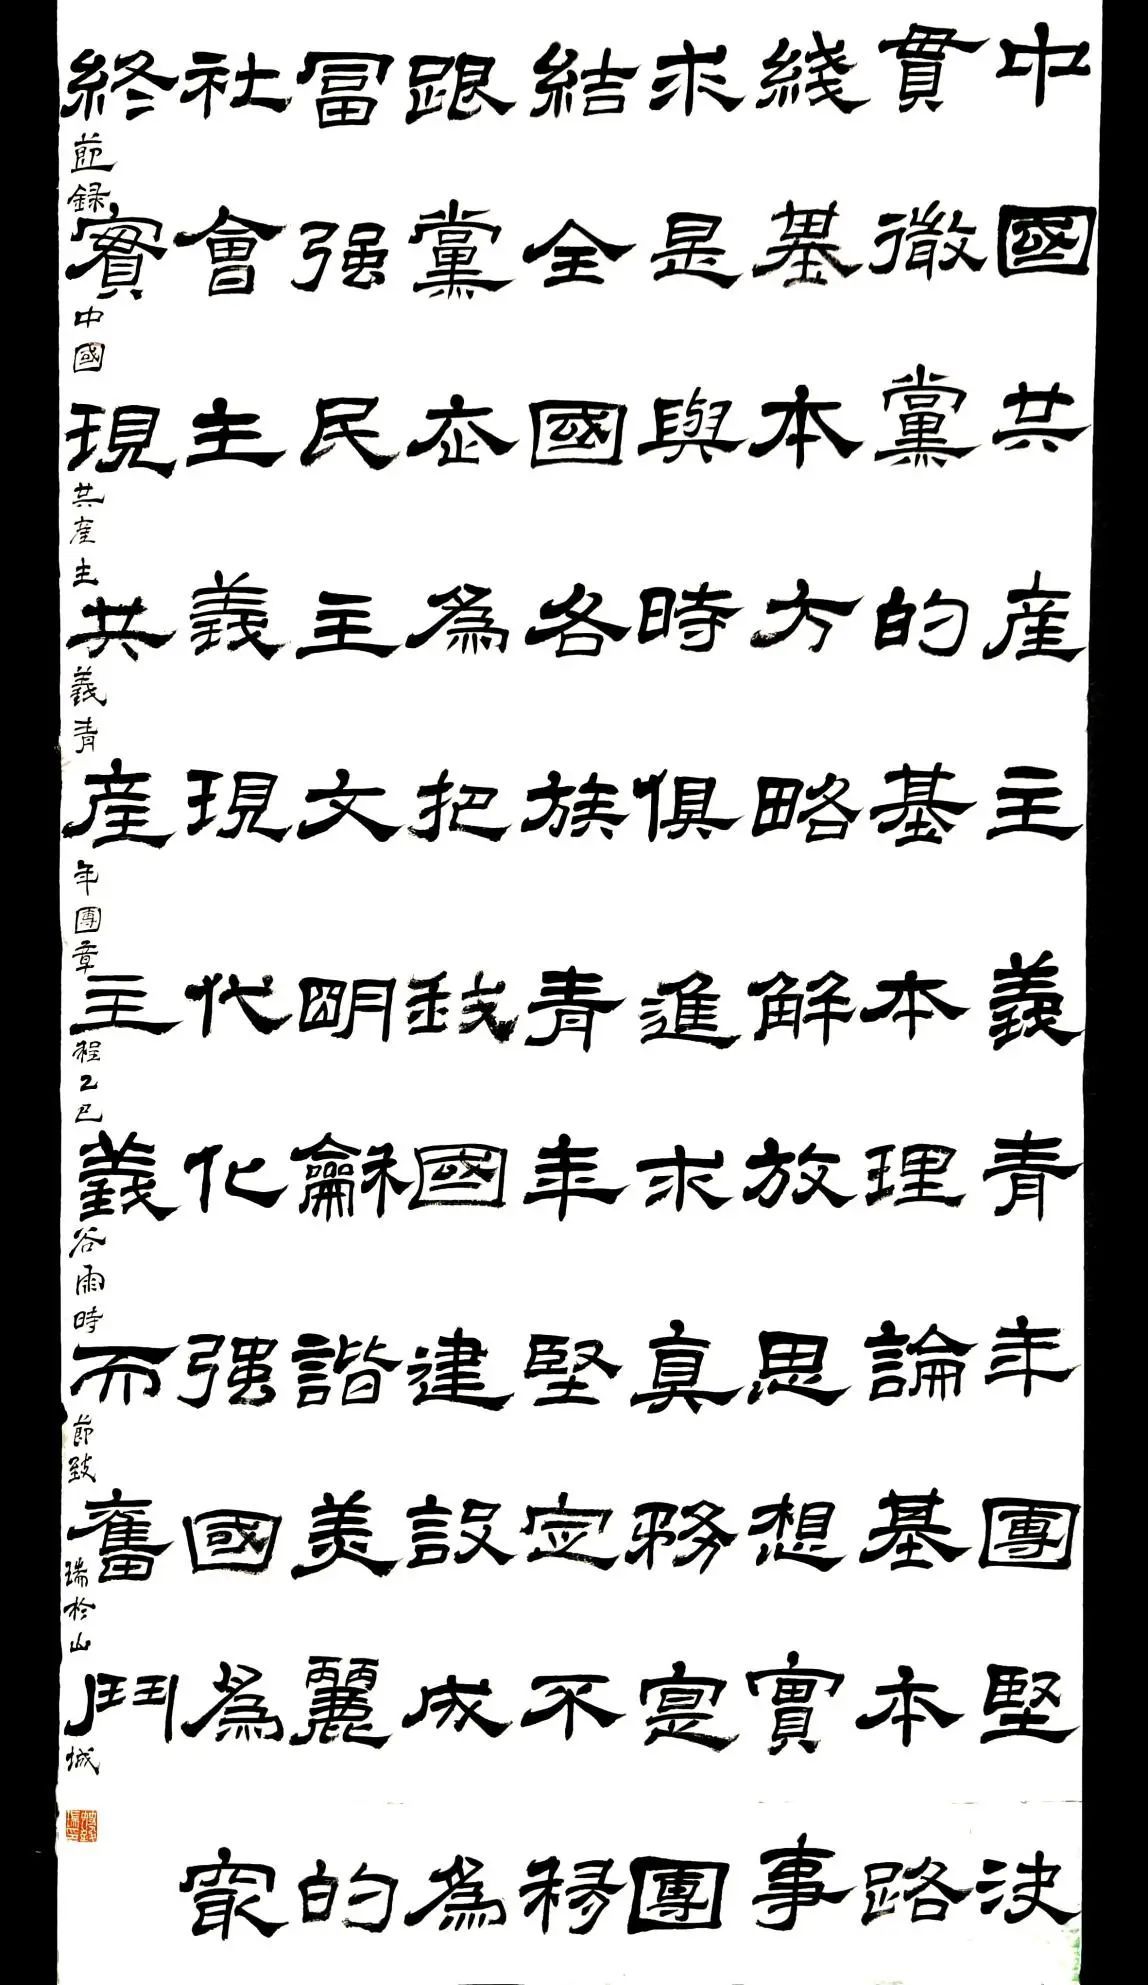 中國共産主義青年團堅決
貫徹黨的基本理論基本路
綫基本方略解放思想實事
求是與時俱進求真務實團
結全國各族青年堅定不移
跟黨走為把我國建設成為
冨强民主文明龢諧美麗的
社會主義現代化强國為最
終實現共産主義而奮鬥
節録中國共産主義青年團章程乙巳谷雨時節瑞於山城